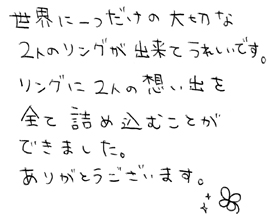 世界に一つだけの大切な
2人のリングが出来てうれしいです。
リングに2人の想い出を
全て詰め込むことが
できました。
ありがとうございます。